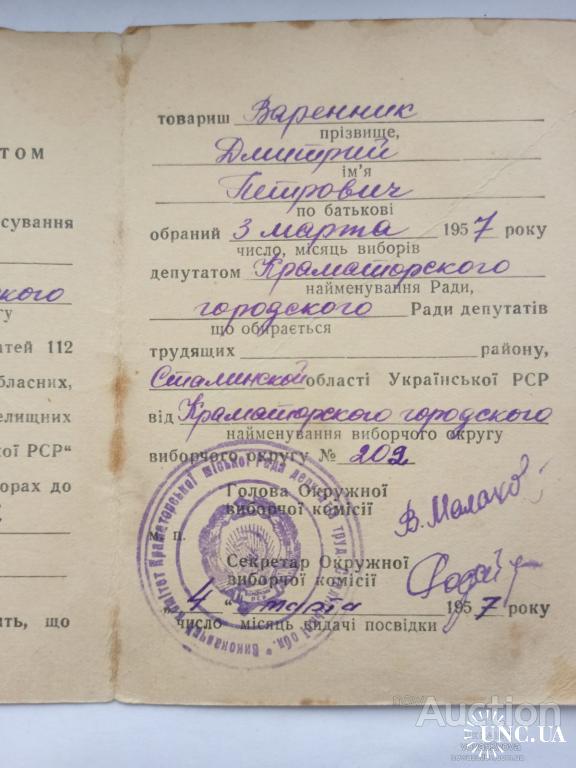 ТОМ
сування
ского
у
тей 112
бласних,
елищних
кої РСР“
орах до
ить, що
товариш Варенник
прізвище,
Дмитрий
ім'я
Петрович
по батькові
обраний 3 марта 1957 року
число, місяць виборів
депутатом Краматорского
найменування Ради,
городского Ради депутатів
що обирається
трудящих району,
Сталинской області Української РСР
від Краматорского городского
найменування виборчого округу
виборчого округу № 202
Голова Окружної
виборчої комісії
В. Малахов
м. п.
Секретар Окружної
виборчої комісії
„4“ марта 1957 року
число місяць видачі посвідки
Краматорської міської Ради
Auction
UNC.UA